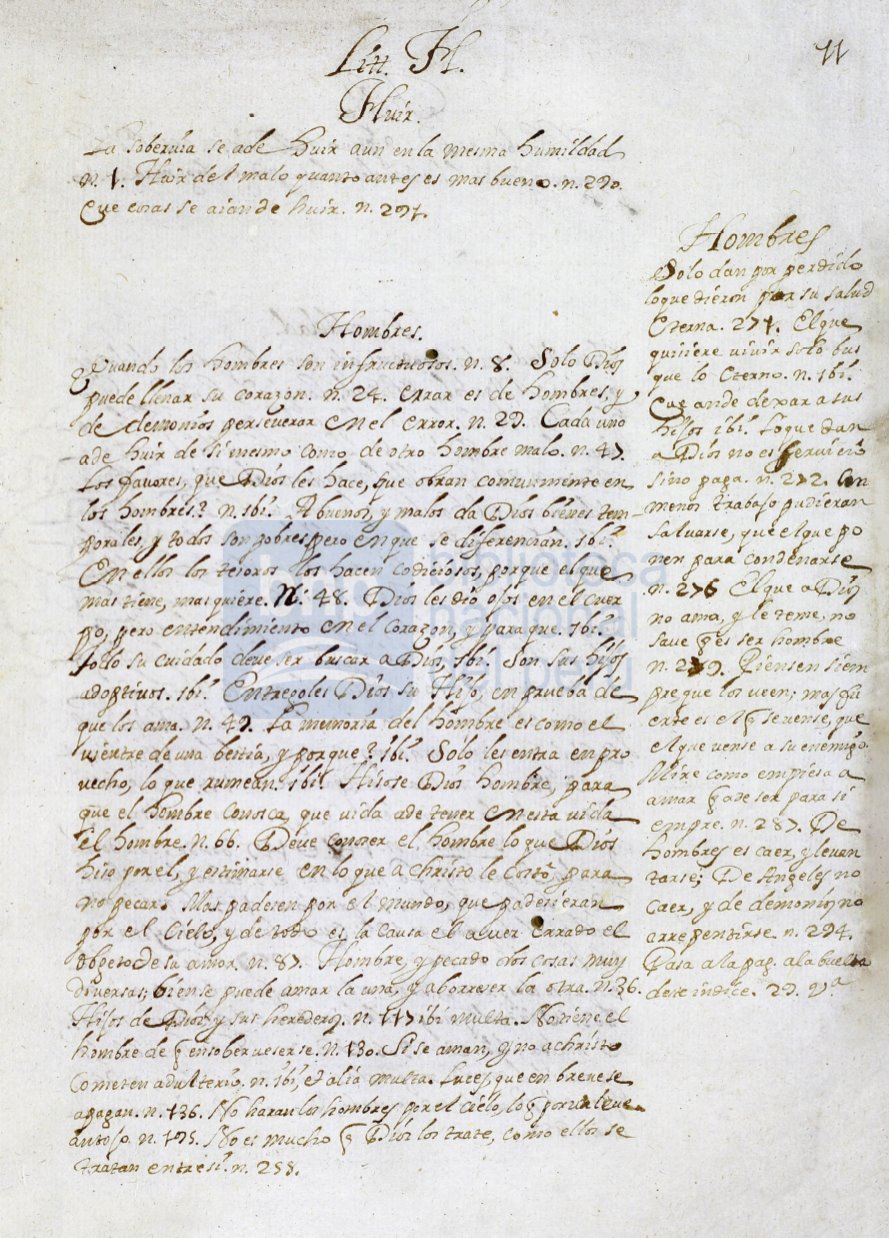 11
Litt. H.
Huir.
La soberuia se ade huir aun en la mesma humildad
n. 1. Huir del malo quanto antes es mas bueno. n. 290.
Que cosas se aian de huir. n. 297.
Hombres.
Quando los hombres son infructuosos. n. 8. Solo Dios
puede llenar su corazon. n. 24. errar es de hombres, y
de demonios perseverar en el error. n. 29. Cada uno
ade huir de si mesmo como de otro hombre malo. n. 47.
Los favores, que Dios les hace, que obran comunmente en
los hombres? n. ibi. A buenos, y malos da Dios bienes tem-
porales, y todos son pobres pero en que se diferencian. ibi.
En ellos los tesoros los hacen codiciosos, porque el que
mas tiene, mas quiere. N. 48. Dios les dio ojos en el cuer
po, pero entendimiento en el corazon, y para que. ibi.
todo su cuidado deve ser buscar a Dios, ibi. Son sus hijos
adoptivos. ibi. Entregoles Dios su Hijo, en prueba de
que los ama. n. 49. La memoria del hombre es como el
vientre de una bestia, y porque? ibi. Solo les entra en pro
vecho, lo que rumean. ibi. Hisose Dios hombre, para
que el hombre conosca, que vida ade tener en esta vida
el hombre. n. 66. Deve conoser el hombre lo que Dios
hiso por el, y estimarse en lo que a christo le Costo, para
no pecar. Mas padesen por el mundo, que padesieran
por el Cielo, y de todo es la causa el aver errado el
obgeto de su amor. n. 87. Hombre, y pecado dos cosas muy
diversas; bien se puede amar la una, y aborreser la otra. n. 36.
Hijos de Dios, y sus herederos. n. 117 ibi multa. No tiene el
hombre de q ensoberueserse. n. 130. Si se aman, y no a christo
Cometen adulterio. n. ibi, et alia multa. Luces, que en breve se
apagan. n. 136. No haran los hombres por el cielo, lo q por un leue
antojo. n. 195. No es mucho q Dios los trate, como ellos se
tratan entre si. n. 258.
Hombres
Solo dan por perdido
lo que dieron por su salud
Eterna. 271. El que
quisiere vivir solo bus
que lo Eterno. n. ibi.
Que ande dexar a sus
hijos ibi. Lo que dan
a Dios no es servicio
sino paga. n. 272. Con
menos trabajo pudieran
saluarse, que el que po
nen para condenarse
n. 276 El que a Dios
no ama, y le teme, no
save q es ser hombre
n. 279. Piensen siem
pre que los veen; mas fu
erte es el q se vense, que
el que vense a su enemigo.
Mire como empiesa a
amar q ade ser para si
empre. n. 287. De
hombres es caer, y levan
tarse; De Angeles no
Caer, y de demonios no
arrepentirse. n. 294.
Pasa a la pag. a la buelta
deste indice. 29. va
biblioteca
nacional
del perú